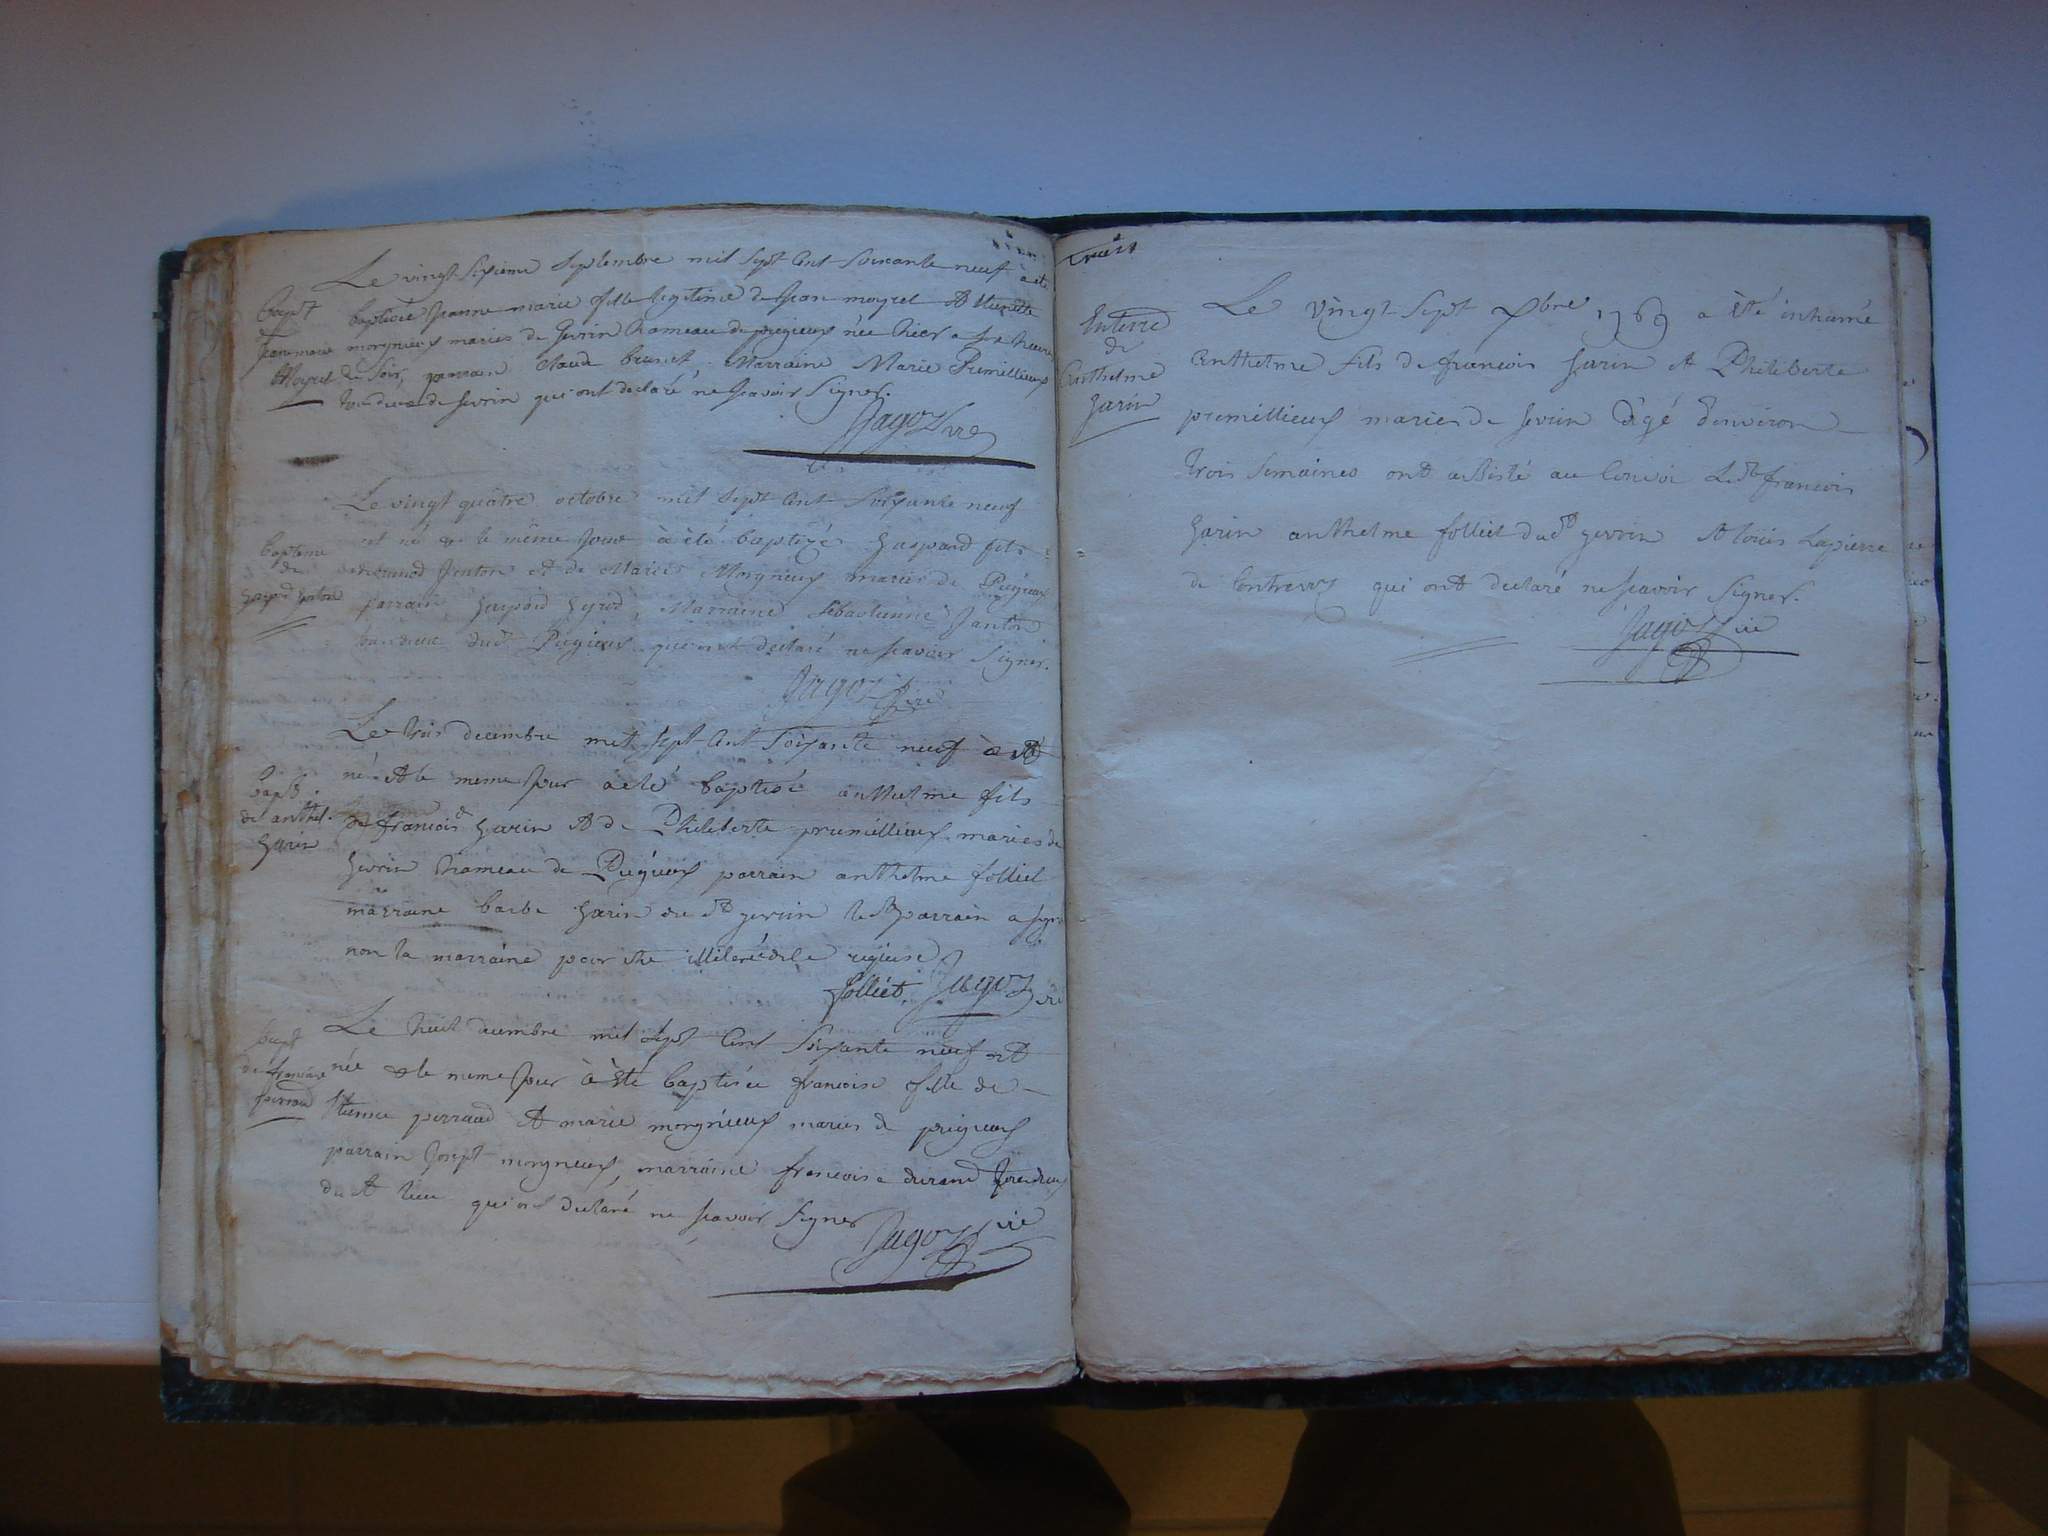 Le vingt sixieme Septembre mil Sept Cent Soixante neuf à eté
Bapt
de
Jeanne marie
Moyret
baptisée Jeanne marie fille legitime de Jean moyret et
morgnieux mariés de Gevrin hameau de pugieux née hier a heures
du Soir, parrain Claude brunet, Marraine Marie Premillieux
de Gevrin qui ont declaré ne sçavoir Signer.
Jagoz vre
Le vingt quatre octobre mil Sept Cent Soixante neuf
Bapteme
de
gaspard janton
est né et le même jour à été baptizé gaspard fils
janton et de Marie Morgnieux mariés de Pugieux
parrain gaspard gyrod, Marraine Sebastienne Janton
dud Pugieux qui ont declaré ne sçavoir Signer.
Jagoz vire
Le trois decembre mil sept Cent Soixante neuf à été
Bapt.
de anthel.
garin
né et le meme jour à eté baptisé anthelme fils
de francois garin et de Philiberte premillieux mariés de
gevrin hameau de Pugieux parrain anthelme folliet
marraine barbe garin de gevrin le parrain a signé
non la marraine pour être illiterée de ce requise
folliet. Jagoz vire
Le huit decembre mil Sept Cent Soixante neuf est
bapt
de francoise
perraud
née et le meme jour à été baptisée francoise fille de
perraud et marie morgnieux mariés de pugieux
parrain Joseph morgnieux, marraine francoise durand
dud lieu qui ont declaré ne sçavoir Signer Jagoz vire
Enterre
de
Anthelme
garin
Le Vingt Sept Xbre 1769 a été inhumé
Anthelme fils de francois garin et Philiberte
premillieux mariés de Gevrin àgé d'environ
trois semaines ont assisté au Convoi Ledt francois
garin anthelme folliet dud gevrin et loüis Lapierre
de qui ont declaré ne sçavoir Signer.
Jagoz vire